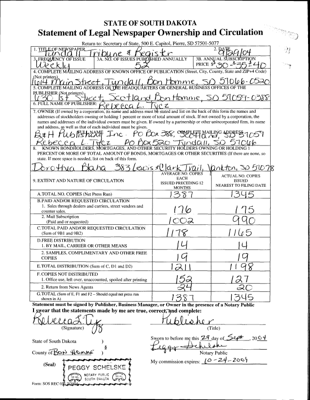 STATE OF SOUTH DAKOTA
Statement of Legal Newspaper Ownership and Circulation
Return to: Secretary of State, 500 E. Capitol, Pierre, SD 57501-5077
1. TITLE OF NEWSPAPER
Tyndall Tribune & Register
3. FREQUENCY OF ISSUE
Weekly
3A. NO. OF ISSUES PUBLISHED ANNUALLY
52
3B. ANNUAL SUBSCRIPTION
PRICE $
4. COMPLETE MAILING ADDRESS OF KNOWN OFFICE OF PUBLICATION (Street, City, County, State and ZIP+4 Code)
(Not printers)
Main Street, Tyndall, Bon Homme, SD 57066-0520
5. COMPLETE MAILING ADDRESS OF THE HEADQUARTERS OR GENERAL BUSINESS OFFICES OF THE
PUBLISHER (Not printers)
Street, Scotland, Bon Homme, SD 57059-
6. FULL NAME OF PUBLISHER:
Rebecca L. Tycz
7. OWNER (If owned by a corporation, its name and address must be stated and also on the back of this form the names and
addresses of stockholders owning or holding 1 percent or more of total amount of stock. If not owned by a corporation, the
names and addresses of the individual owners must be given. If owned by a partnership or other unincorporated firm, its name
and address, as well as that of each individual must be given.
COMPLETE MAILING ADDRESS
B & H Publishing Inc PO Box Scotland, SD
Rebecca L Tycz PO Box 520 Tyndall, SD 57066
8. KNOWN BONDHOLDERS, MORTGAGEES, AND OTHER SECURITY HOLDERS OWNING OR HOLDING 1
PERCENT OR MORE OF TOTAL AMOUNT OF BONDS, MORTGAGES OR OTHER SECURITIES (If there are none, so
state. If more space is needed, list on back of this form.
Dorothy Blaha 383 Lewis & Clark Trail, Yankton, SD 57078
9. EXTENT AND NATURE OF CIRCULATION
AVERAGE NO. COPIES
EACH
ISSUED PRECEDING 12
MONTHS
ACTUAL NO. COPIES
ISSUED
NEAREST TO FILING DATE
A. TOTAL NO. COPIES (Net Press Run) 1387 1345
B. PAID AND/OR REQUESTED CIRCULATION
1. Sales through dealers and carriers, street vendors and
counter sales.
176 175
2. Mail Subscription
(Paid and or requested)
1002 990
C. TOTAL PAID AND/OR REQUESTED CIRCULATION
(Sum of 9B1 and 9B2)
1178 1165
D. FREE DISTRIBUTION
1. BY MAIL, CARRIER OR OTHER MEANS
14 14
2. SAMPLES, COMPLIMENTARY AND OTHER FREE
COPIES
19 19
E. TOTAL DISTRIBUTION (Sum of C, D1 and D2) 1211 1198
F. COPIES NOT DISTRIBUTED
1. Office use, left over, unaccounted, spoiled after printing
152 127
2. Return from News Agents
24 20
G. TOTAL (Sum of E, F1 and F2 - Should equal net press run
shown in A)
1387 1345
Statement must be signed by Publisher, Business Manager, or Owner in the presence of a Notary Public
I swear that the statements made by me are true, correct, and complete:
Rebecca L Tycz
(Signature)
Publisher
(Title)
State of South Dakota )
County of Bon Homme )
Sworn to before me this day of Sept
Peggy Schelske
Notary Public
(Seal)
My commission expires: 10-24-2009
PEGGY SCHELSKE
NOTARY PUBLIC
SOUTH DAKOTA